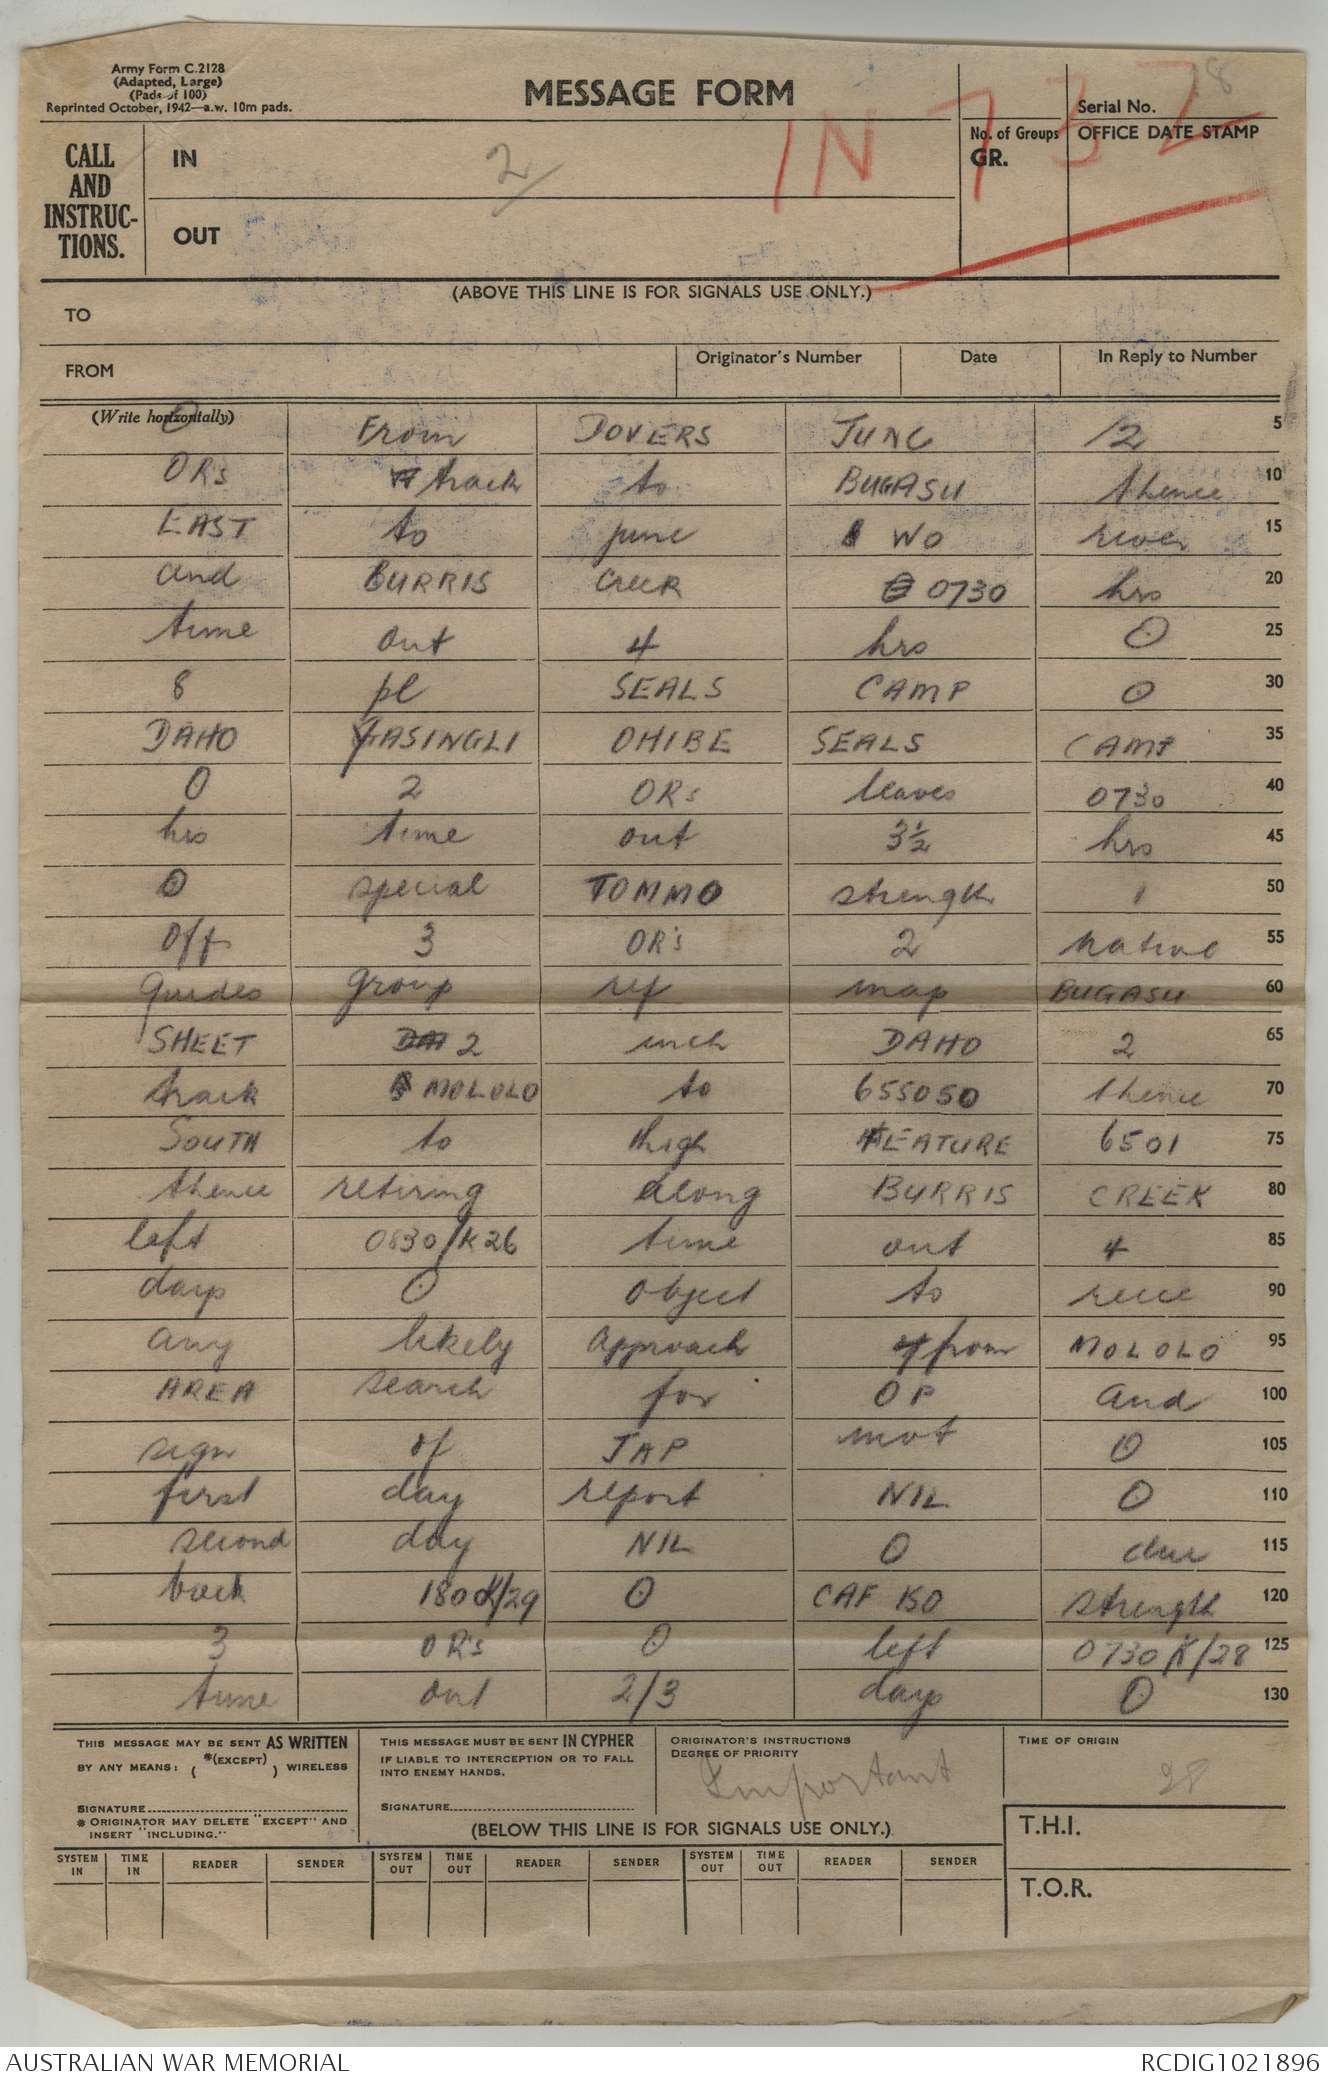 Army Form C.2128
(Adapted, Large)
(Pads of 100)
Reprinted October, 1942—a.w. 10m pads.
MESSAGE FORM
28
Serial No.
IN 732
No. of Groups
GR.
OFFICE DATE STAMP
CALL AND INSTRUC- TIONS.
IN
2/
OUT
(ABOVE THIS LINE IS FOR SIGNALS USE ONLY.)
TO
FROM
Originator's Number Date In Reply to Number
(Write horizontally)
O From DOVERS JUNC 12 5
ORs track to BUGASU thence 10
EAST to junc WO river 15
and BURRIS Creek 0730 hrs 20
time out 4 hrs O 25
8 pl SEALS CAMP O 30
DAHO FASINGLI OHIBE SEALS CAMP 35
O 2 ORs leaves 0730 40
hrs time out 3½ hrs 45
O special TOMMO strength 1 50
off 3 OR's 2 native 55
guides group ref map BUGASU 60
SHEET 2 inch DAHO 2 65
track MOLOLO to 655050 thence 70
SOUTH to high FEATURE 6501 75
thence retiring along BURRIS CREEK 80
left 0830/K26 time out 4 85
days O object to recce 90
any likely approach from MOLOLO 95
AREA search for OP and 100
sign of JAP mvt O 105
first day report NIL O 110
second day NIL O due 115
back 1800K/29 O CAF 150 strength 120
3 OR's O left 0730K/28 125
time out 2/3 days O 130
THIS MESSAGE MAY BE SENT AS WRITTEN
BY ANY MEANS: ( *(EXCEPT) ) WIRELESS
SIGNATURE
* ORIGINATOR MAY DELETE "EXCEPT" AND
INSERT "INCLUDING."
THIS MESSAGE MUST BE SENT IN CYPHER
IF LIABLE TO INTERCEPTION OR TO FALL
INTO ENEMY HANDS.
SIGNATURE
ORIGINATOR'S INSTRUCTIONS
DEGREE OF PRIORITY
Important
TIME OF ORIGIN
28
(BELOW THIS LINE IS FOR SIGNALS USE ONLY.)
T.H.I.
T.O.R.
SYSTEM IN TIME IN READER SENDER SYSTEM OUT TIME OUT READER SENDER SYSTEM OUT TIME OUT READER SENDER
AUSTRALIAN WAR MEMORIAL RCDIG1021896